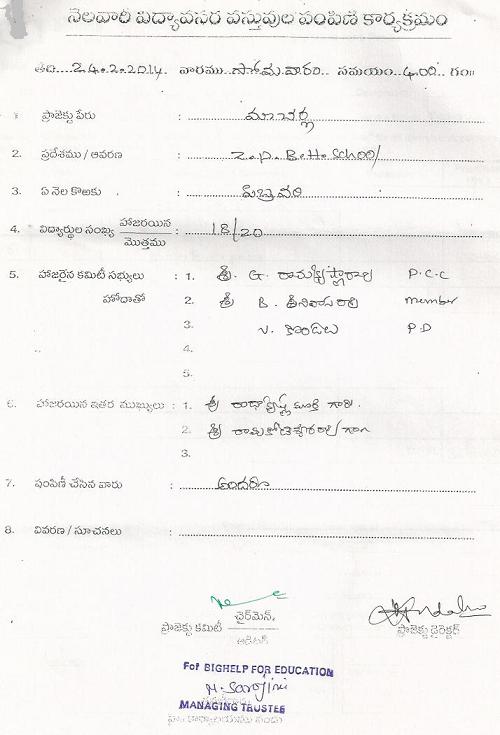 నెలవారి విద్యావసర వస్తువుల పంపిణి కార్యక్రమం
తేది....24.2.2014. వారము సోమవారం.. సమయం..4.00.. గం॥
1. ప్రాజెక్టు పేరు : మాచర్ల
2. ప్రదేశము / ఆవరణ : Z.P. B. H. School
3. ఏ నెల కొఱకు : ఫిబ్రవరి
4. విద్యార్థుల సంఖ్య హాజరయిన / మొత్తము : 18/20
5. హాజరైన కమిటీ సభ్యులు : 1. శ్రీ. G. రామకృష్ణారావు P.C.C
హోదాతో 2. శ్రీ B. శ్రీనివాసరావు member
3. N. కొండలు P.D
4.
5.
6. హాజరయిన ఇతర ముఖ్యులు : 1. శ్రీ మూర్తి గారు.
2. శ్రీ రామకోటేశ్వరరావు గారు
3.
7. పంపిణీ చేసిన వారు : అందరూ
8. వివరణ / సూచనలు :
ప్రాజెక్టు కమిటీ ఛైర్‌మెన్ / ఆడిటర్
ప్రాజెక్టు డైరెక్టర్
For BIGHELP FOR EDUCATION
N. Sarojini
MANAGING TRUSTEE